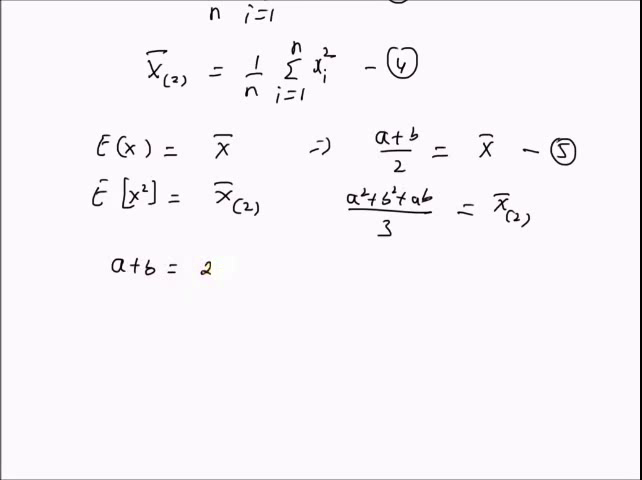 n i=1
X̄(2) = 1/n Σ(i=1 to n) xᵢ² - ④
E(x) = x̄ ⇒ (a+b)/2 = x̄ - ⑤
E[x²] = x̄(2) (a²+b²+ab)/3 = x̄(2)
a+b = 2